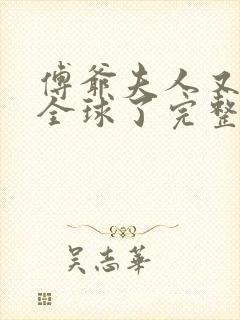 傅爷夫人又
全球了完整
吴志华